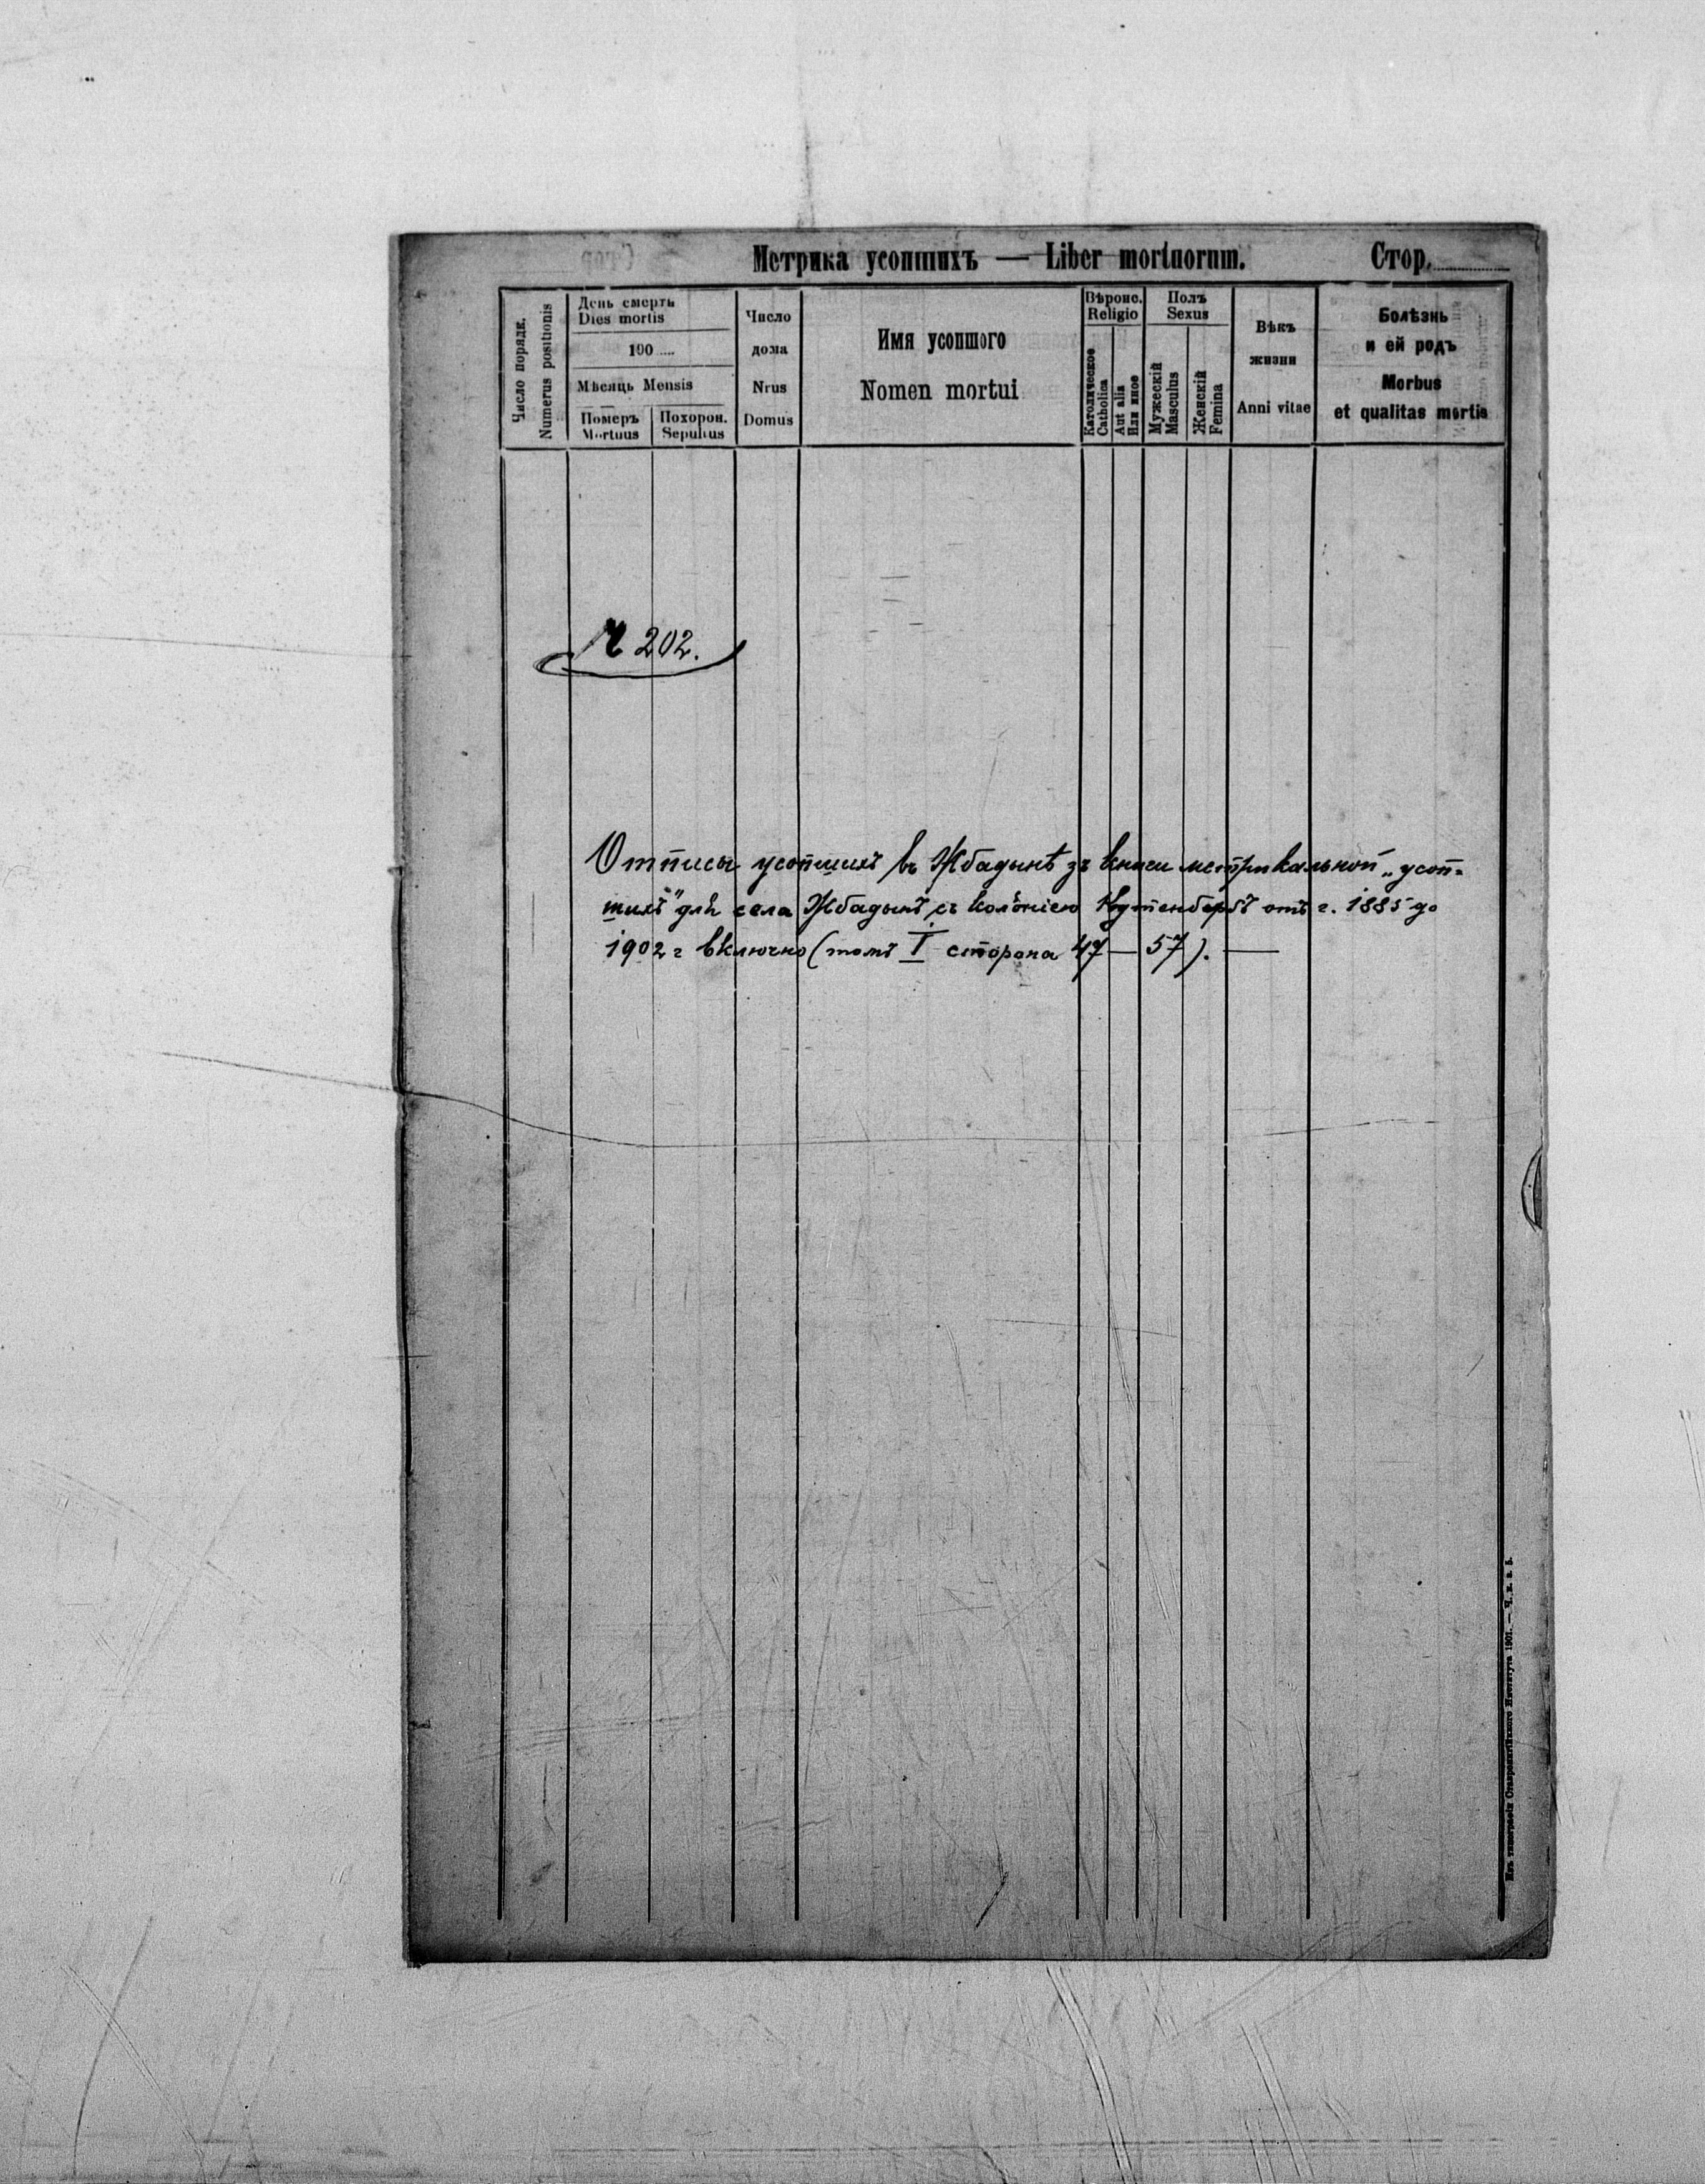 Метрика усопшихъ — Liber mortuorum.
Стор.
Число порядк.
Numerus positionis
День смерти
Dies mortis
190 ....
Мѣсяць Mensis
Померъ
Mortuus
Похорон.
Sepultus
Число
дома
Nrus
Domus
Имя усопшого
Nomen mortui
Вѣроис.
Religio
Католическое
Catholica
Aut alia
Или иное
Полъ
Sexus
Мужескій
Masculus
Женскій
Femina
Вѣкъ
жизни
Anni vitae
Болѣзнь
и ей родъ
Morbus
et qualitas mortis
202.
Отписы усопшихъ въ Жбадынѣ зъ книги метрикальной „усоп=
шихъ" для села Жбадынѣ съ колонією Кутенбергъ отъ г. 1885 до
1902 г включно (томъ I сторона 47 — 57). —
Изъ типографіи Ставропигійского Института 1901. — Ч. к. а. 5.